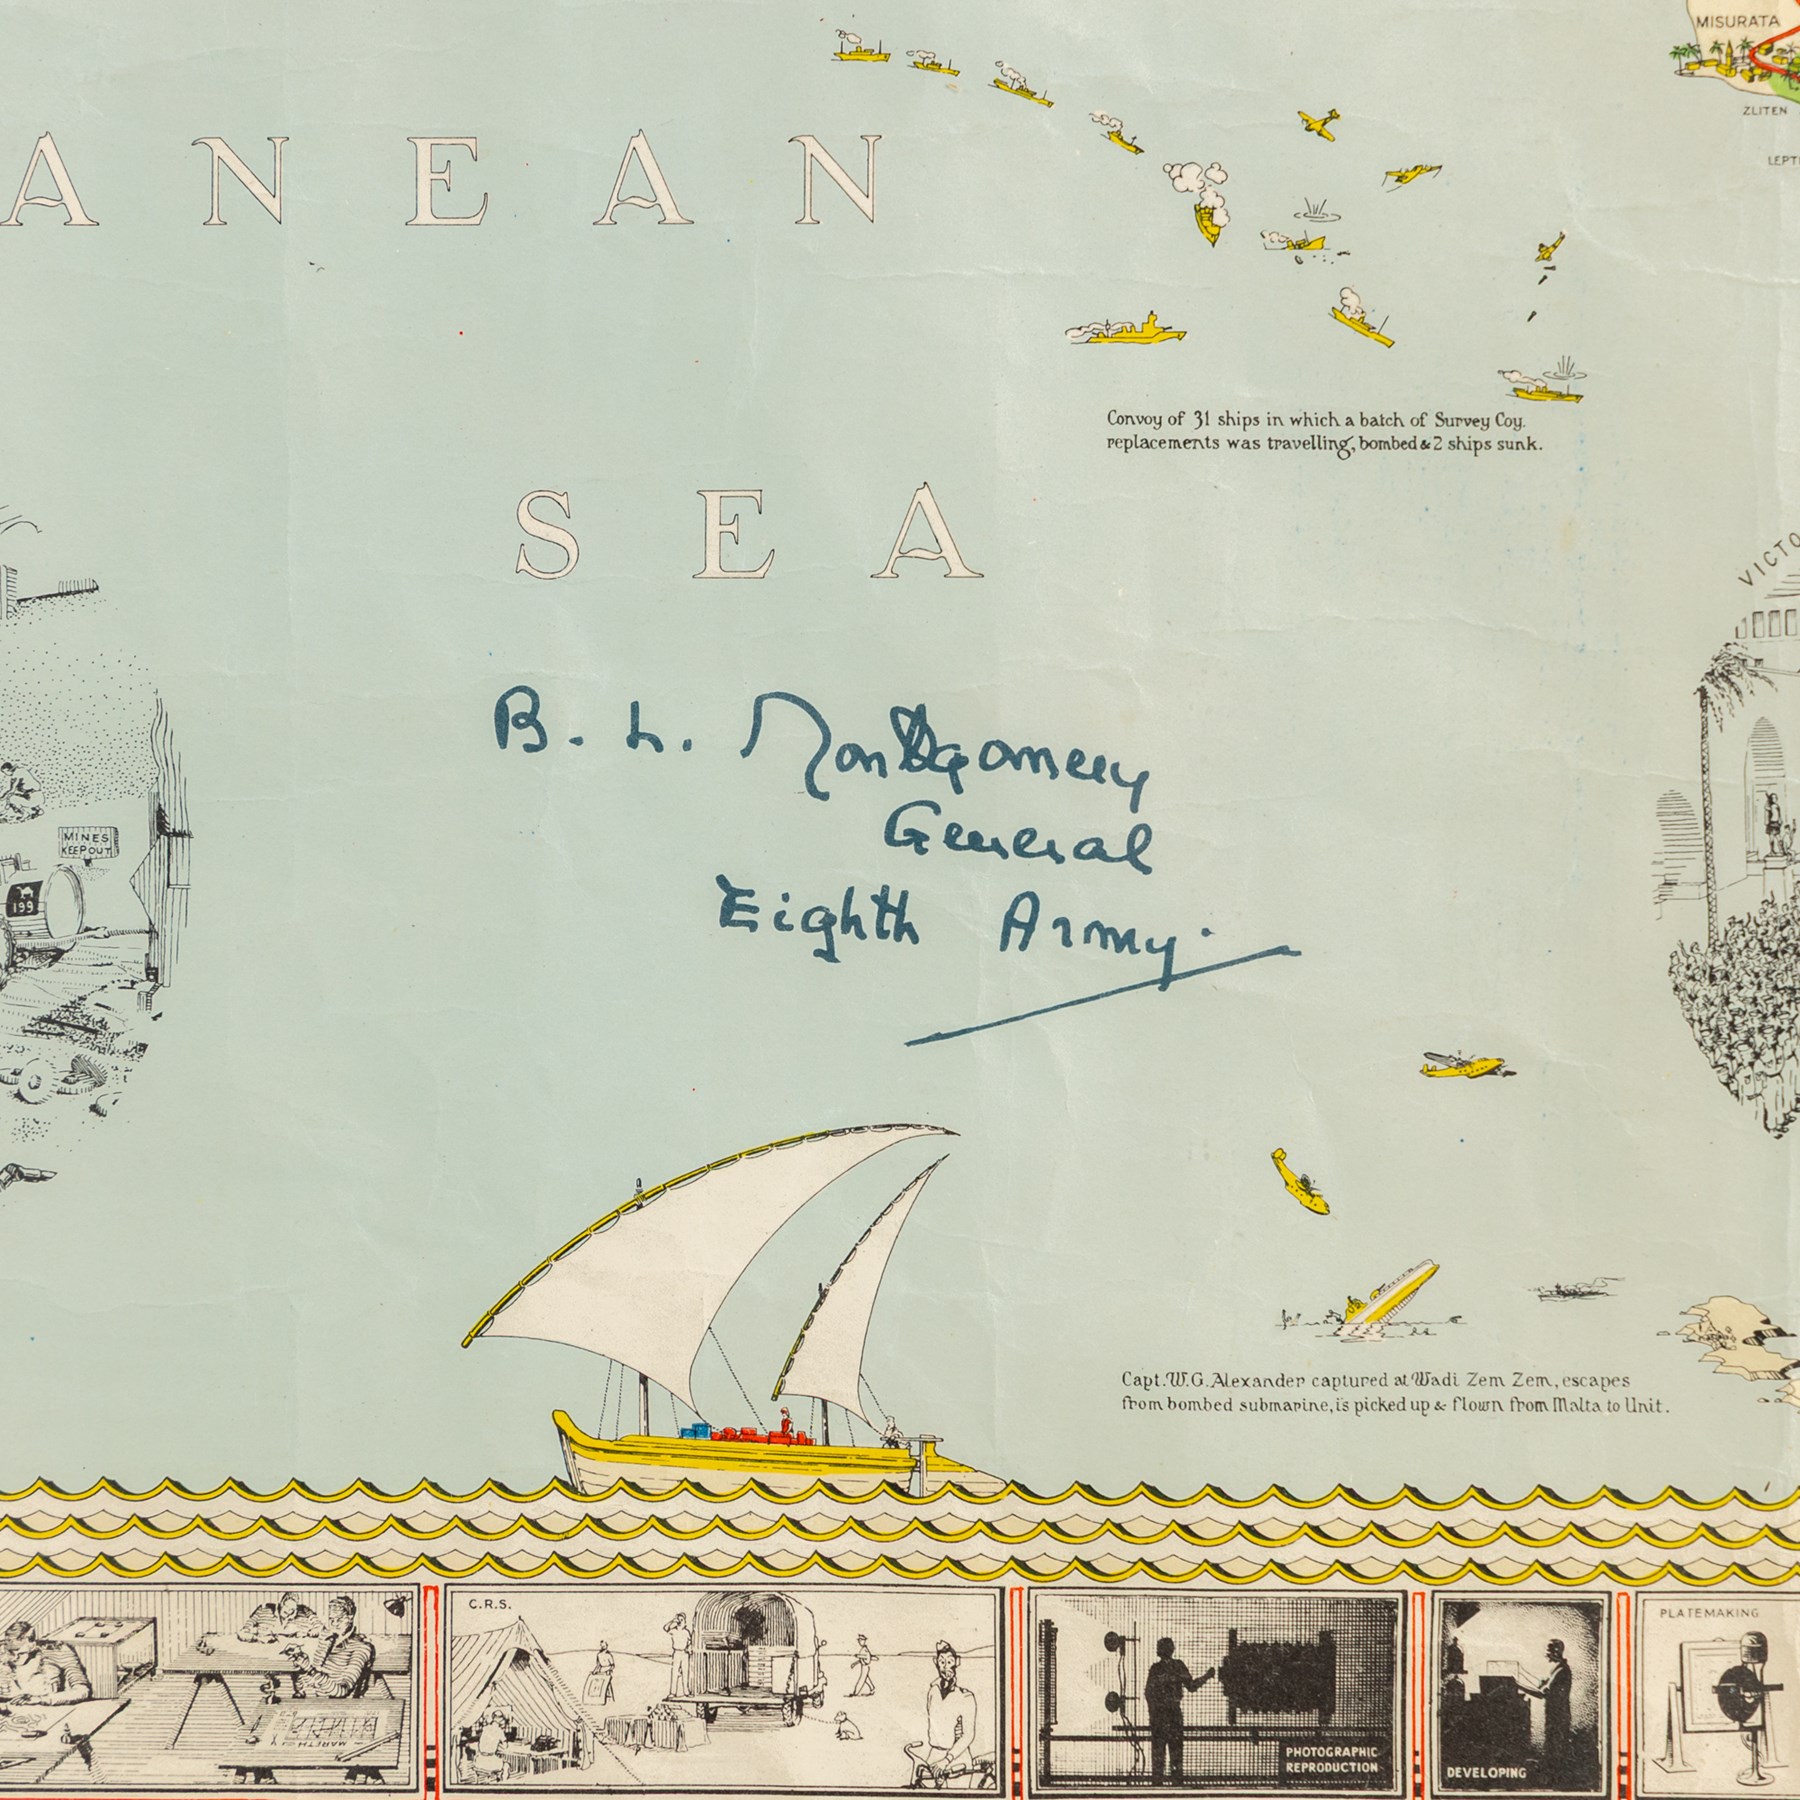 MISURATA
ZLITEN
LEPT
ANEAN
Convoy of 31 ships in which a batch of Survey Coy.
replacements was travelling, bombed & 2 ships sunk.
SEA
VICTO
B. L. Montgomery
General
Eighth Army.
MINES
KEEP OUT
199
Capt. W.G. Alexander captured at Wadi Zem Zem, escapes
from bombed submarine, is picked up & flown from Malta to Unit.
MARETH
C.R.S.
PHOTOGRAPHIC
REPRODUCTION
DEVELOPING
PLATEMAKING